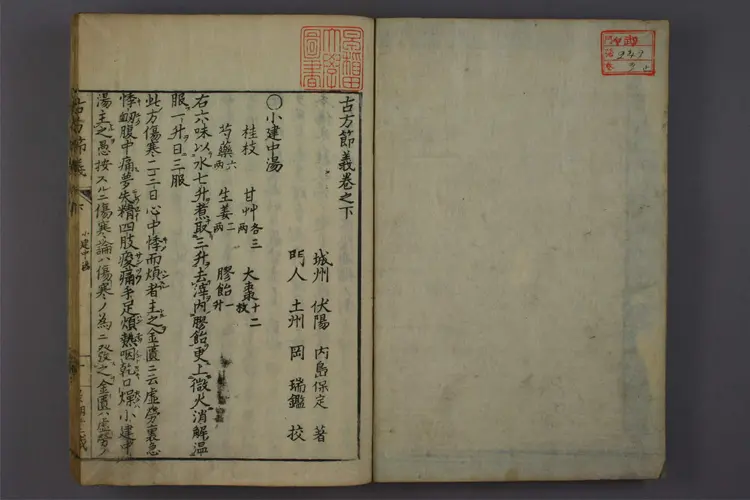 古方節義巻之下
城州 伏陽 内島保定 著
門人 土州 岡 瑞鑑 校
○小建中湯
桂枝 甘艸各三両 大棗十二枚
芍藥六両 生姜二両 膠飴一升
右六味以水七升煮取三升去滓内膠飴更上微火消解温
服一升日三服
此方傷寒二三日心中悸而煩者主之金匱ニ云虚労裏急
悸衂腹中痛夢失精四肢痠痛手足煩熱咽乾口燥小建中
湯主之愚按スルニ傷寒論ハ傷寒ノ為ニ發之金匱ハ虚労ノ
小建中湯